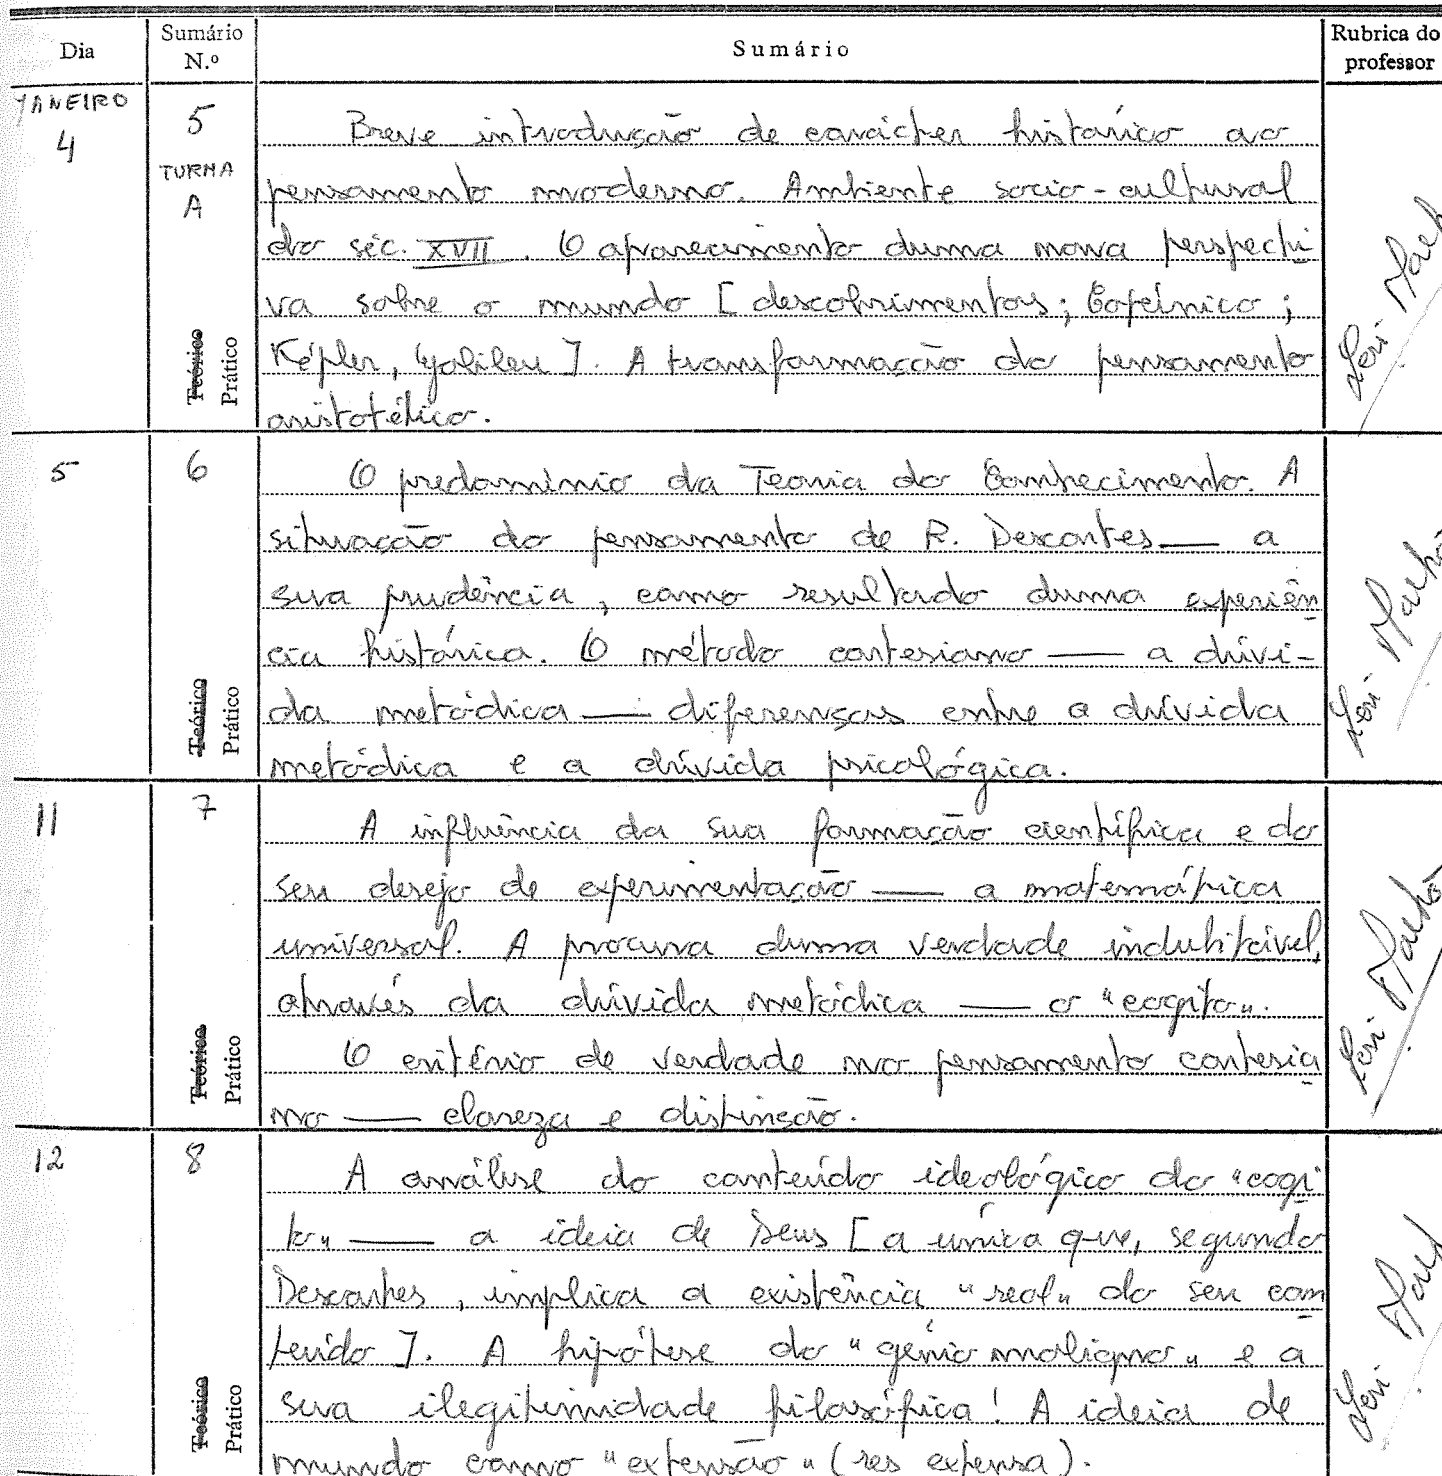 Dia
Sumário
N.º
Sumário
Rubrica do
professor
JANEIRO
4
5
TURMA
A
Teórico
Prático
Breve introdução de carácter histórico ao
pensamento moderno. Ambiente socio-cultural
do séc. XVII. O aparecimento duma nova perspecti
va sobre o mundo [descobrimentos; Copérnico;
Képler, Galileu]. A transformação do pensamento
aristotélico.
5
6
Teórico
Prático
O predomínio da Teoria do Conhecimento. A
situação do pensamento de R. Descartes — a
sua prudência, como resultado duma experiên
cia histórica. O método cartesiano — a dúvi-
da metódica — diferenças entre a dúvida
metódica e a dúvida psicológica.
11
7
Teórico
Prático
A influência da sua formação científica e do
seu desejo de experimentação — a matemática
universal. A procura duma verdade indubitável,
através da dúvida metódica — o "cogito".
O critério de verdade no pensamento cartesia
no — clareza e distinção.
12
8
Teórico
Prático
A análise do conteúdo ideológico do "cogi
to" — a ideia de Deus [a única que, segundo
Descartes, implica a existência "real" do seu con
teúdo]. A hipótese do "génio maligno" e a
sua ilegitimidade filosófica! A ideia de
mundo como "extensão" (res extensa).